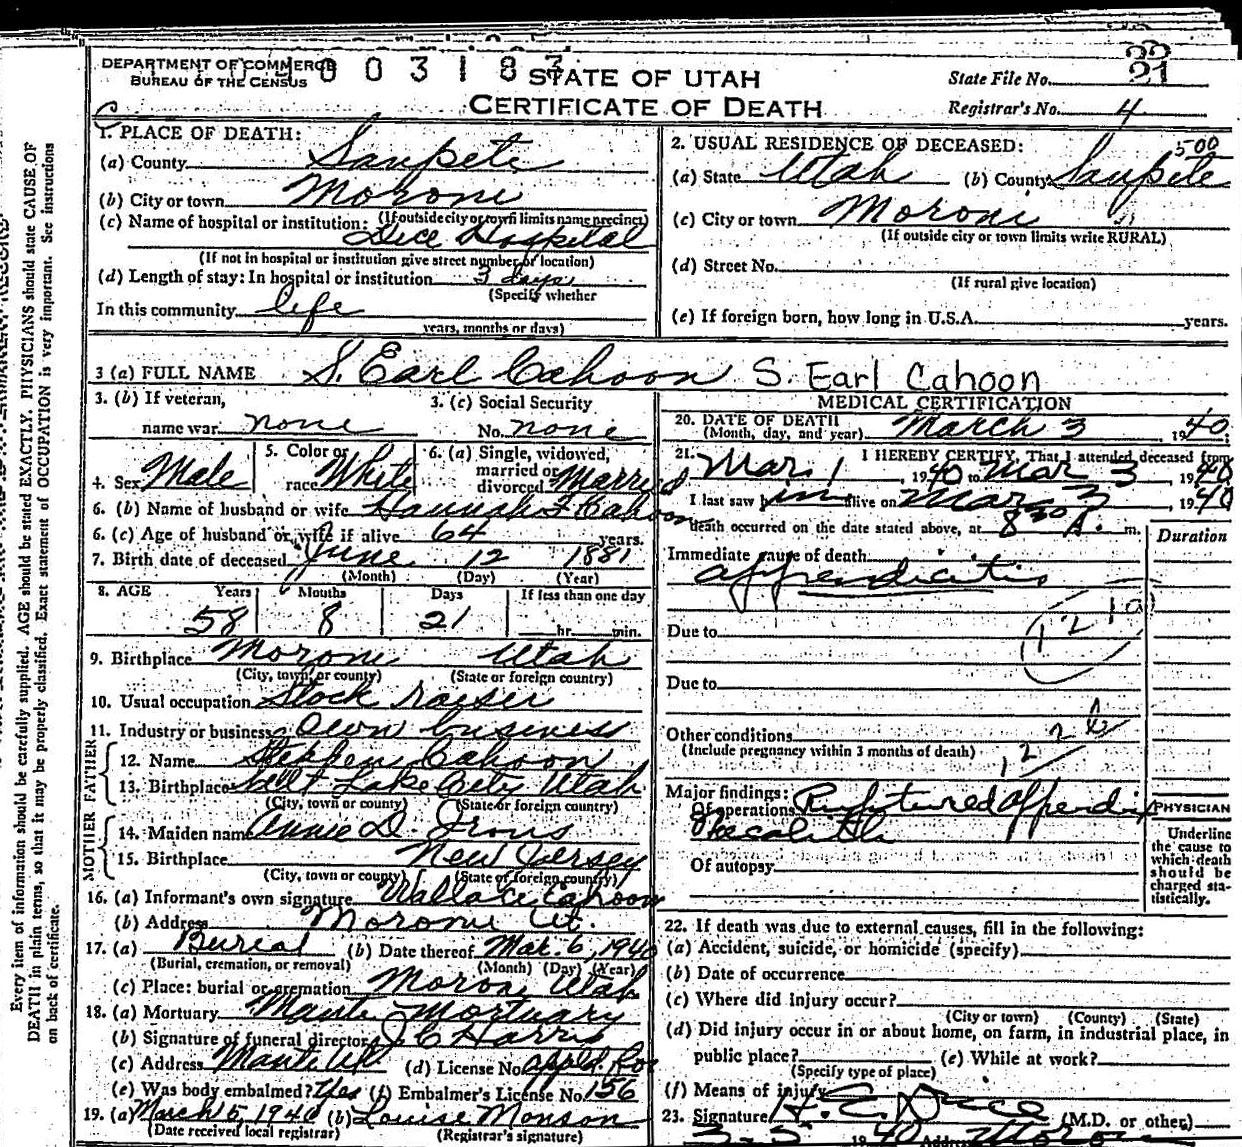 DEPARTMENT OF COMMERCE
BUREAU OF THE CENSUS
003183
STATE OF UTAH
CERTIFICATE OF DEATH
State File No. 21
Registrar's No. 4
1. PLACE OF DEATH:
(a) County Sanpete
(b) City or town Moroni
(If outside city or town limits name precinct)
(c) Name of hospital or institution:
Dice Hospital
(If not in hospital or institution give street number or location)
(d) Length of stay: In hospital or institution 3 days
(Specify whether
In this community life
years, months or days)
2. USUAL RESIDENCE OF DECEASED:
500
(a) State Utah (b) County Sanpete
(c) City or town Moroni
(If outside city or town limits write RURAL)
(d) Street No.
(If rural give location)
(e) If foreign born, how long in U.S.A. years.
3 (a) FULL NAME S. Earl Cahoon S. Earl Cahoon
3. (b) If veteran,
name war none
3. (c) Social Security
No. none
4. Sex Male
5. Color or
race White
6. (a) Single, widowed,
married or
divorced Married
6. (b) Name of husband or wife Hannah F Cahoon
6. (c) Age of husband or wife if alive 64 years.
7. Birth date of deceased June 12 1881
(Month) (Day) (Year)
8. AGE Years Months Days If less than one day
58 8 21 hr. min.
9. Birthplace Moroni Utah
(City, town, or county) (State or foreign country)
10. Usual occupation Stock raiser
11. Industry or business Own business
FATHER
12. Name Stephen Cahoon
13. Birthplace Salt Lake City Utah
(City, town or county) (State or foreign country)
MOTHER
14. Maiden name Annie D. Irons
15. Birthplace New Jersey
(City, town or county) (State or foreign country)
16. (a) Informant's own signature Wallace Cahoon
(b) Address Moroni Ut.
17. (a) Burial (b) Date thereof Mar. 6, 1940
(Burial, cremation, or removal) (Month) (Day) (Year)
(c) Place: burial or cremation Moroni Utah
18. (a) Mortuary Manti Mortuary
(b) Signature of funeral director J C Harris
(c) Address Manti Ut (d) License No.
(e) Was body embalmed? Yes (f) Embalmer's License No. 156
19. (a) March 5, 1940 (b) Louise Monson
(Date received local registrar) (Registrar's signature)
MEDICAL CERTIFICATION
20. DATE OF DEATH
(Month, day, and year) March 3, 1940
21. I HEREBY CERTIFY, That I attended deceased from
Mar. 1, 1940 to Mar 3, 1940
I last saw him alive on Mar 3, 1940
death occurred on the date stated above, at 8 30 A. m.
Duration
Immediate cause of death
appendicitis
121a
Due to
Due to
Other conditions
(Include pregnancy within 3 months of death)
Major findings:
Of operations Ruptured Appendix
Of autopsy
PHYSICIAN
Underline
the cause to
which death
should be
charged sta-
tistically.
22. If death was due to external causes, fill in the following:
(a) Accident, suicide, or homicide (specify)
(b) Date of occurrence
(c) Where did injury occur?
(City or town) (County) (State)
(d) Did injury occur in or about home, on farm, in industrial place, in
public place? (e) While at work?
(Specify type of place)
(f) Means of injury
23. Signature (M.D. or other)
3-5- 1940 Address Moroni
Every item of information should be carefully supplied. AGE should be stated EXACTLY. PHYSICIANS should state CAUSE OF
DEATH in plain terms, so that it may be properly classified. Exact statement of OCCUPATION is very important. See instructions
on back of certificate.